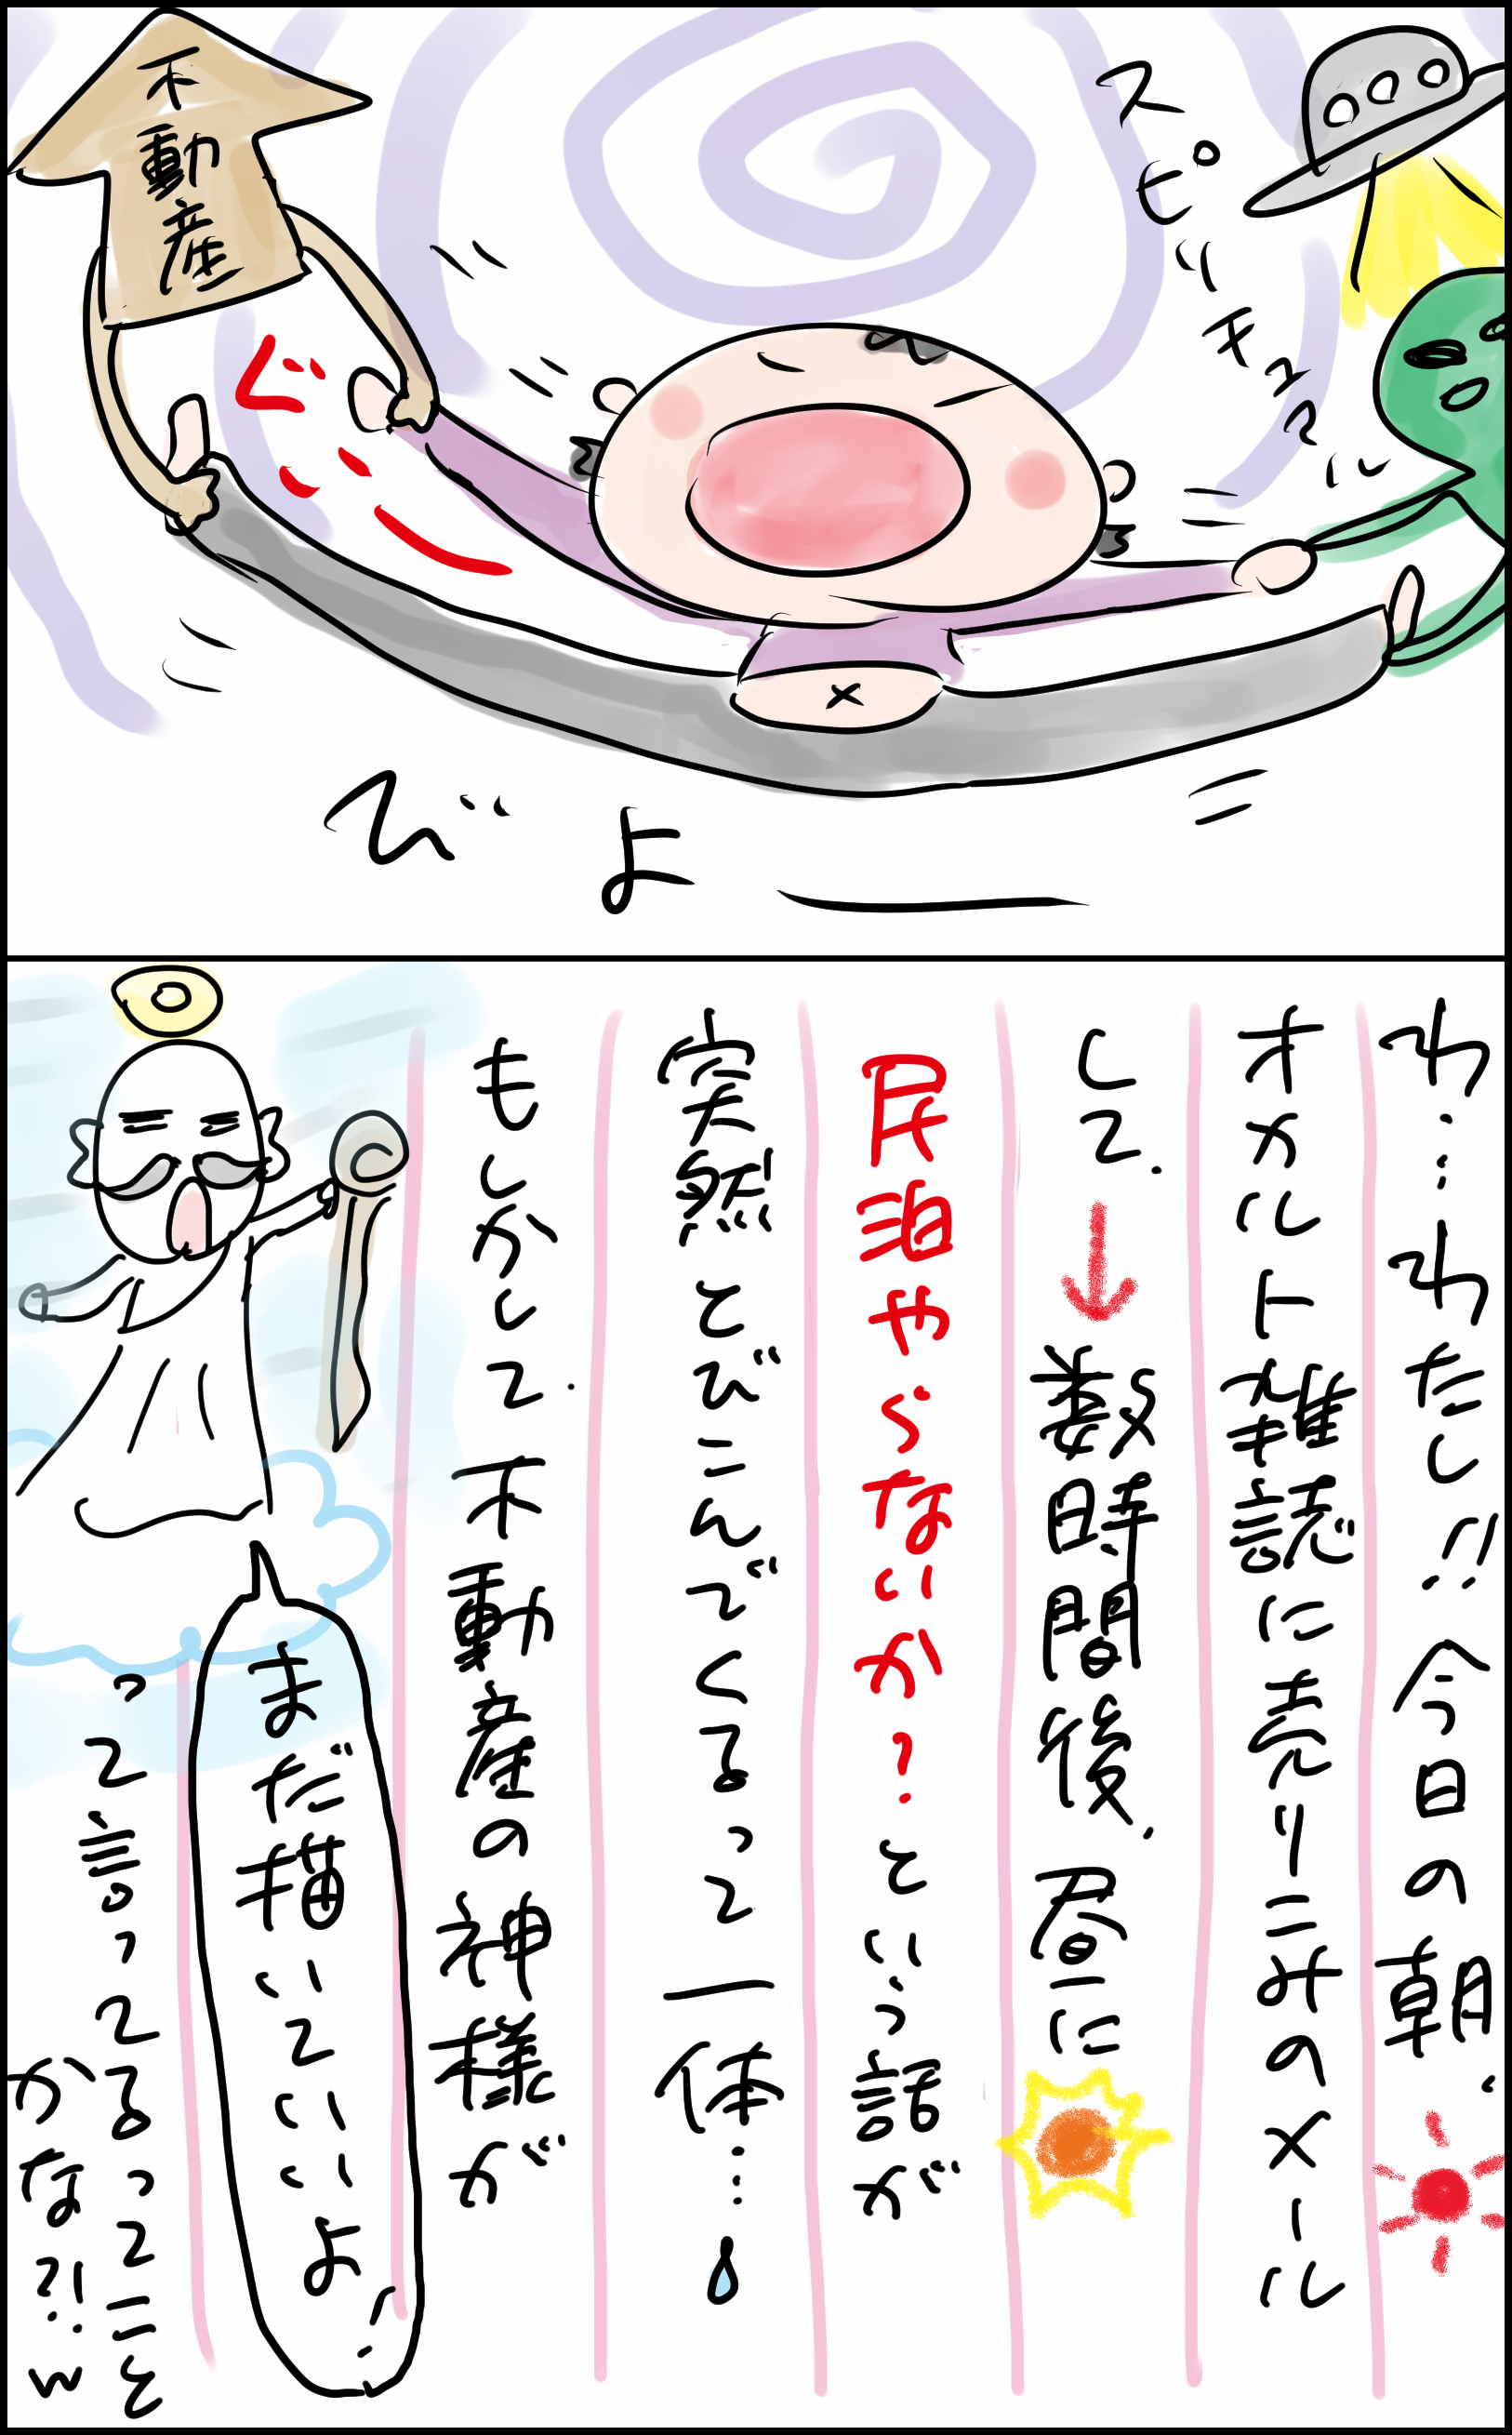 スピリチュアル
不動産
ぐい
びよー
わ…わたし!!今日の朝、
オカルト雑誌に売りこみのメール
して、↓数時間後、昼に
民泊やらないか?という話が
突然とびこんでくるって一体…
もしかして、不動産の神様が
まだ描いていいよ…
って言ってるってこと
かな?!w